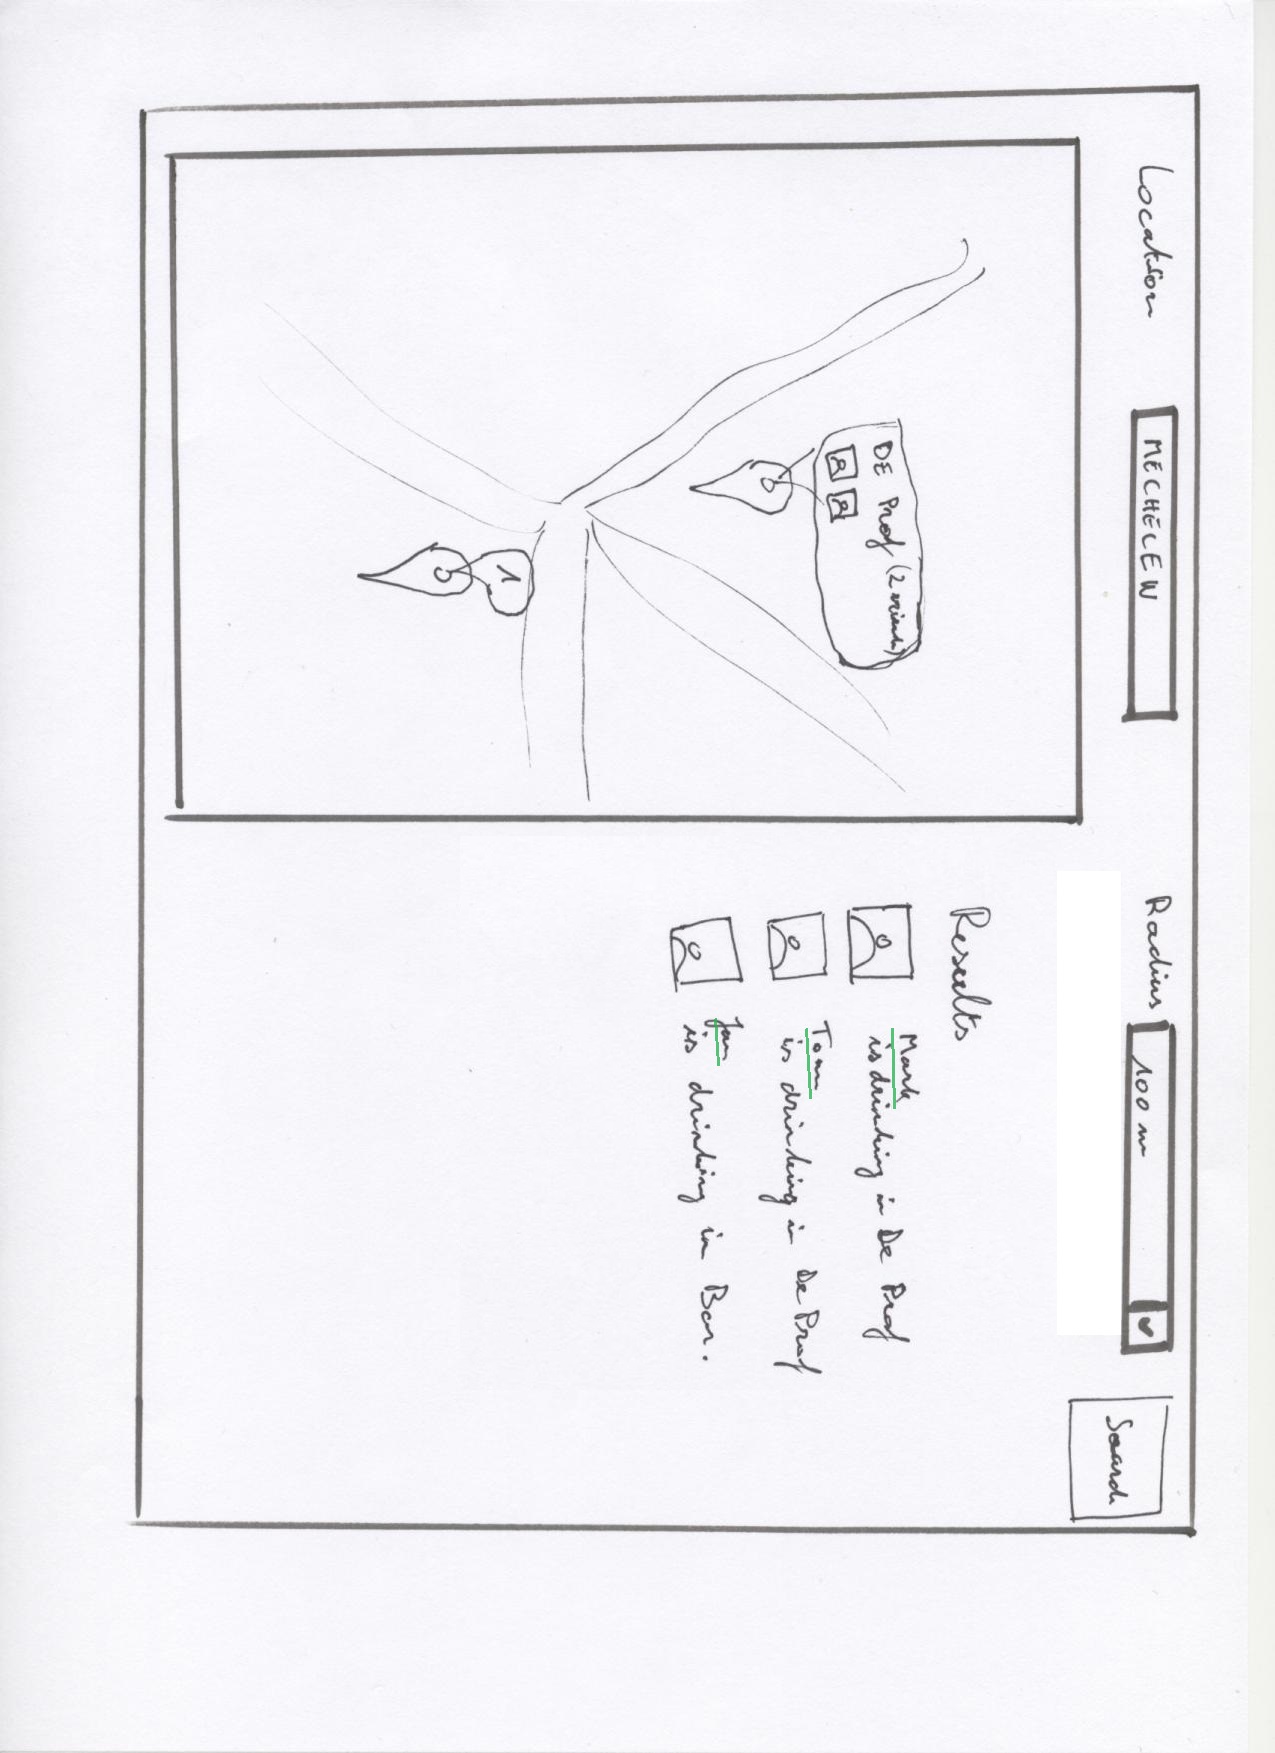 Location
MECHELEN
Radius
100 m
Search
DE Prof (2 vrienden)
1
Results
Mark
is drinking in De Prof
Tom
is drinking in De Prof
Jan
is drinking in Bar.